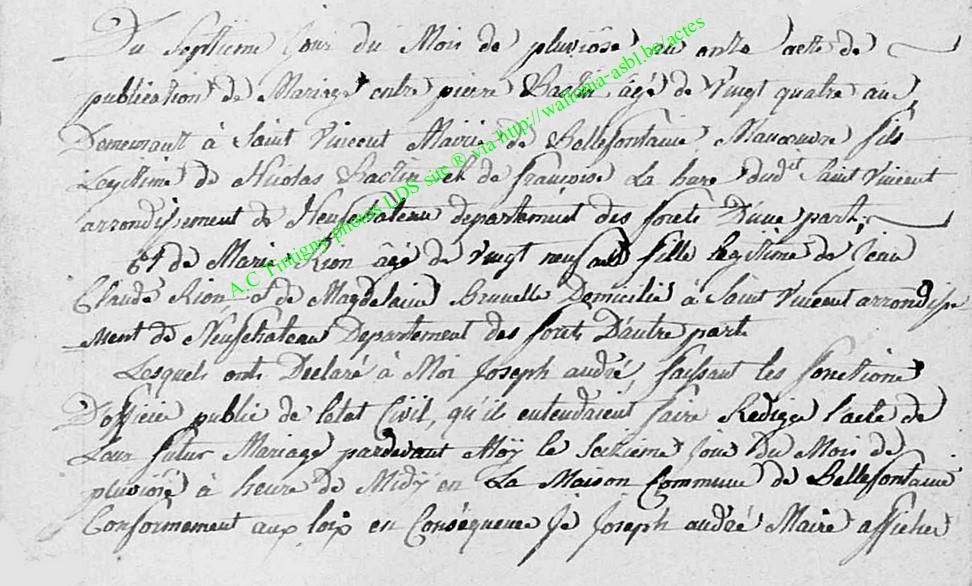 Du Septieme Jour du Mois de pluviôse an onze acte de
publication de Mariage entre pierre Bactin âgé de Vingt quatre ans
Demeurant à Saint Vincent Mairie de Bellefontaine Manoeuvre fils
Legitime de Nicolas Bactin et de françoise La hure dudt Saint Vincent
arrondissement de Neufchateau departement des forets D'une part,
Et de Marie Rion âgé de Vingt neuf ans fille legitime de Jean
Claude Rion & de Magdelaine Brunelle Domicilié à Saint Vincent arrondisse
Ment de Neufchateau Departement des forets D'autre part
Lesquels onts Declaré à Moi Joseph andré, faisant les fonctions
D'officier public de l'etat Civil, qu'il entendaient faire Rediger l'acte de
Leur futur Mariage pardevant Moÿ le Seizieme Jour du Mois de
pluviose à heure de Midÿ en La Maison Commune de Bellefontaine
Conformement aux loix en Conséquence Je Joseph andré Maire afficher
A.C Tintigny photos UDS sur ® via http://wallonia-asbl.be/actes